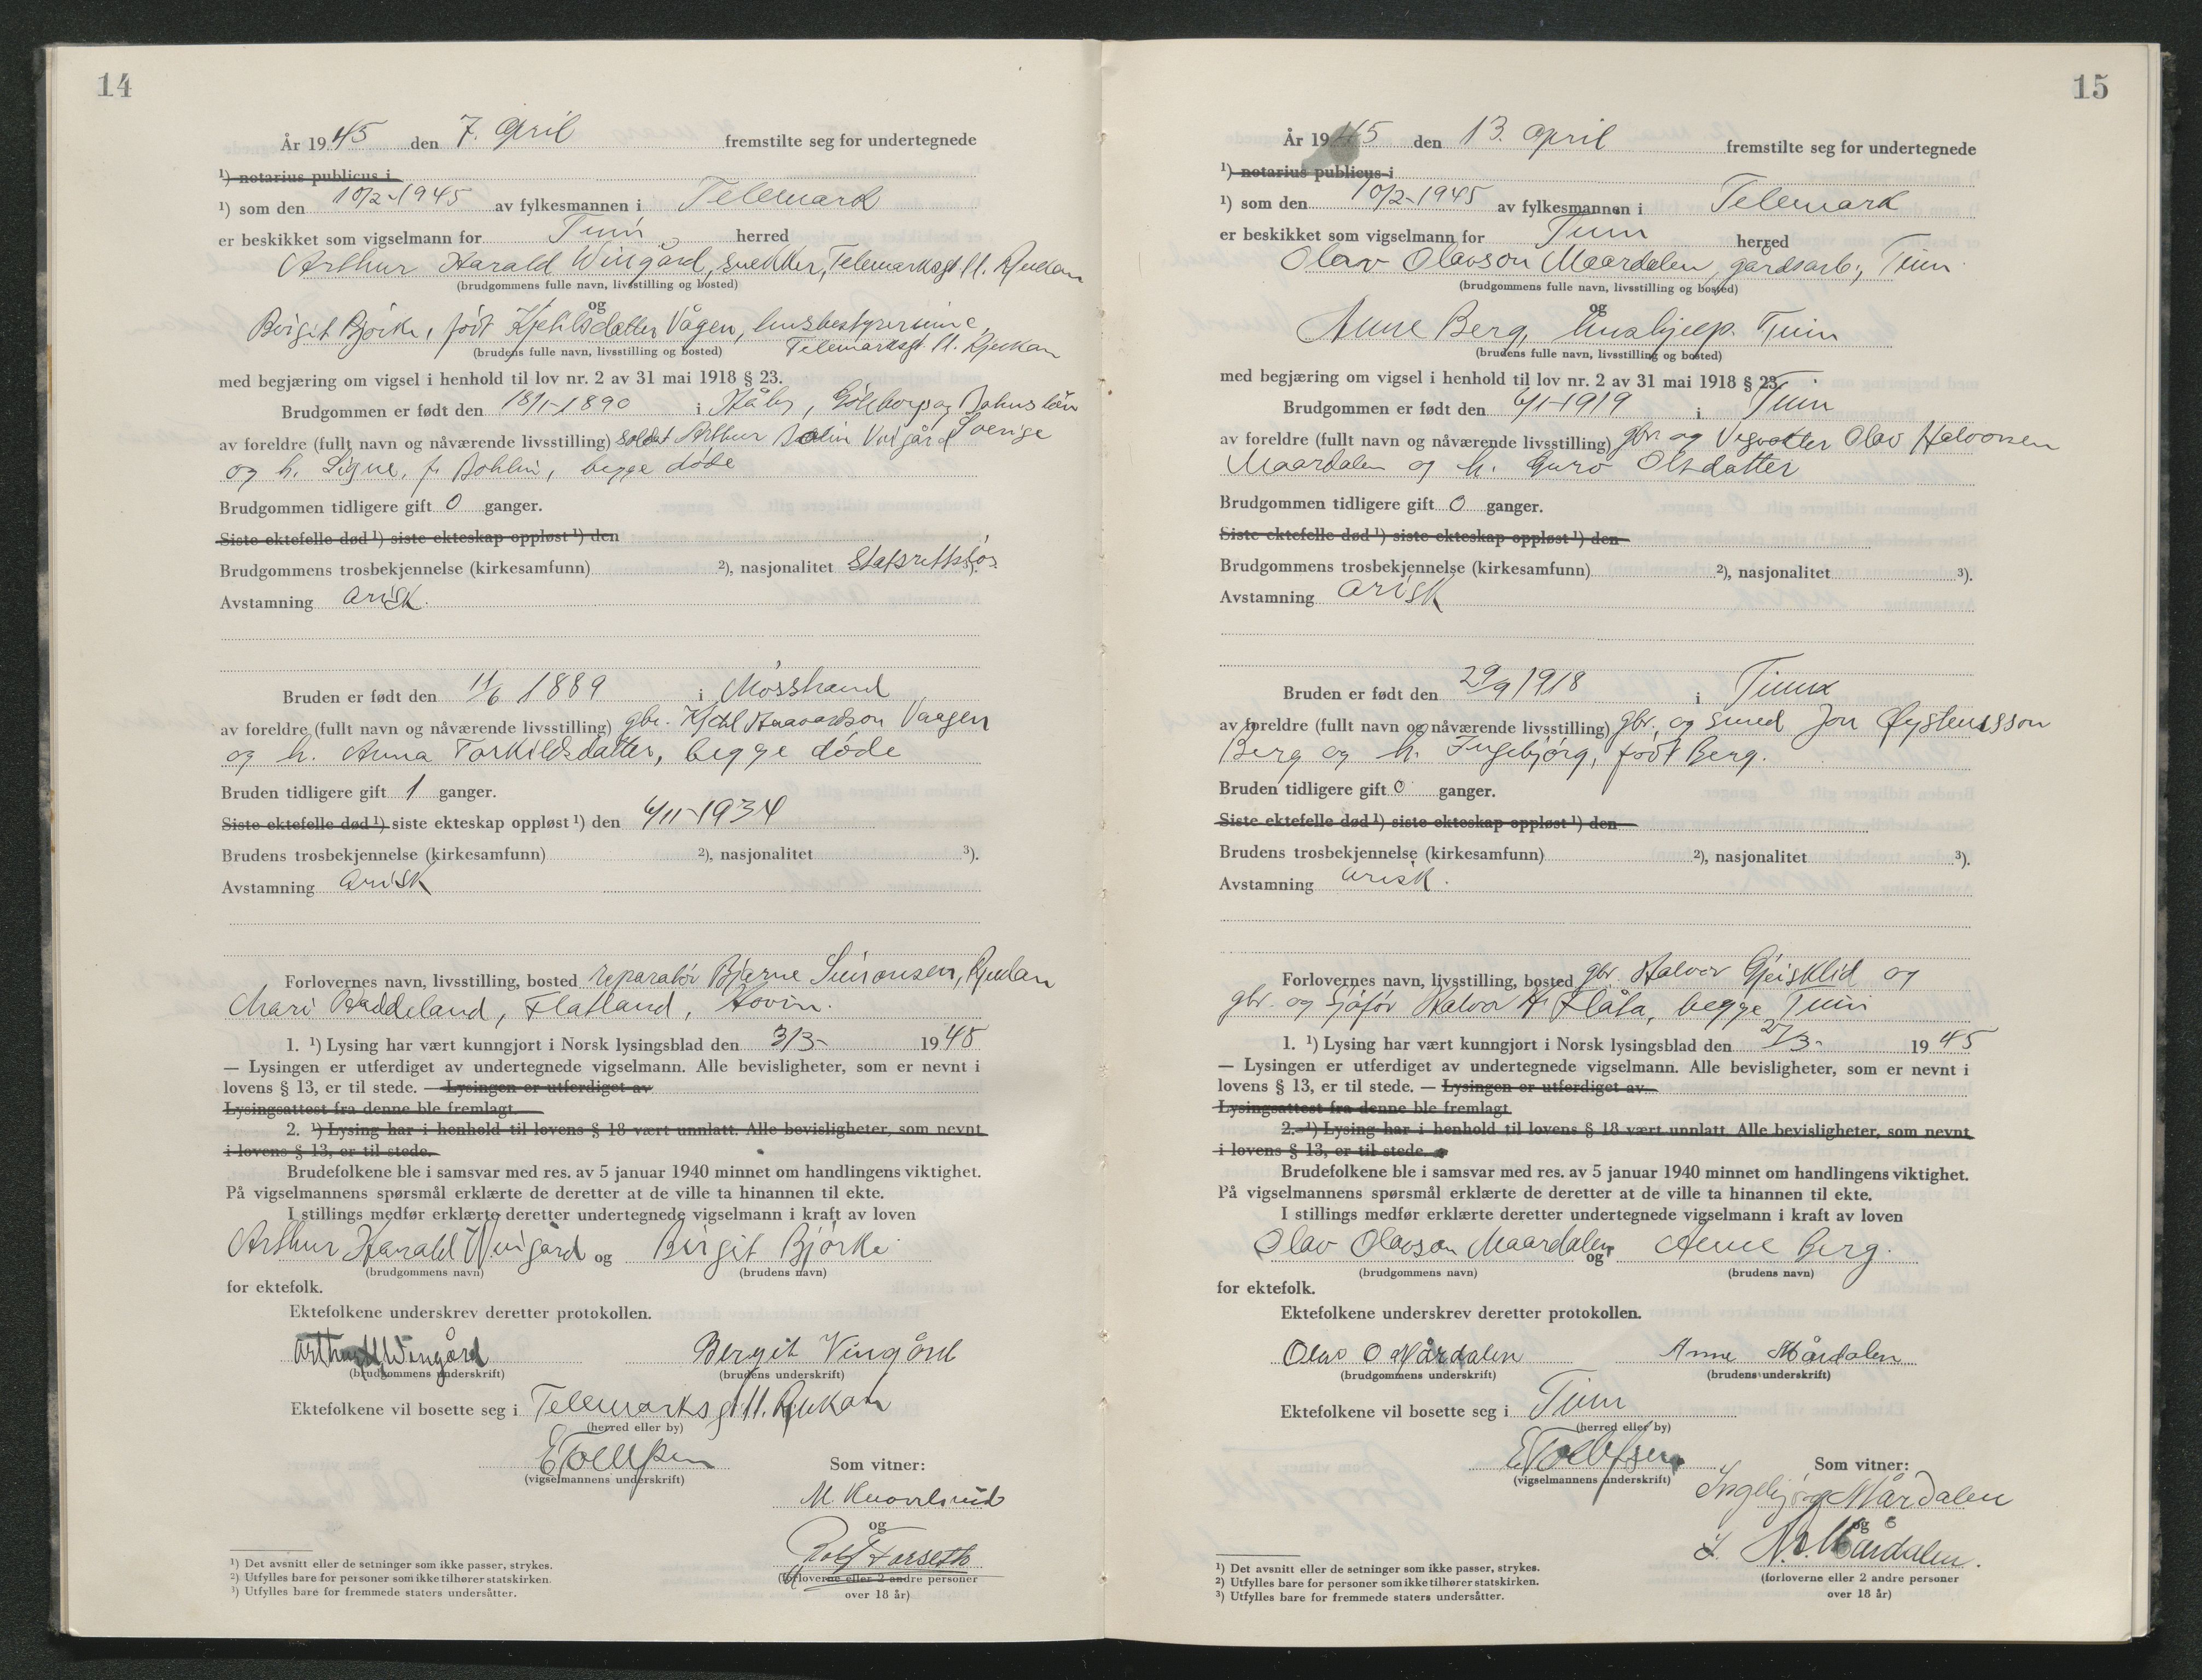 14
År 1945 den 7. April fremstilte seg for undertegnede
¹) notarius publicus i
¹) som den 10/2-1945 av fylkesmannen i Telemark
er beskikket som vigselmann for Tinn herred
Arthur Harald Wingård, snekker, Telemarksgt 11. Rjukan
(brudgommens fulle navn, livsstilling og bosted)
og
Birgit Bjørke, født Kjetilsdatter Vågen, husbestyrerinne,
Telemarksgt. 11. Rjukan
(brudens fulle navn, livsstilling og bosted)
med begjæring om vigsel i henhold til lov nr. 2 av 31 mai 1918 § 23.
Brudgommen er født den 18/1-1890 i Håby, Göteborg og Bohus län
Sverige
av foreldre (fullt navn og nåværende livsstilling) soldat Arthur Vingård
og h. Signe, f. Bohlin, begge døde
Brudgommen tidligere gift 0 ganger.
Siste ektefelle død ¹) siste ekteskap oppløst ¹) den
Brudgommens trosbekjennelse (kirkesamfunn) ²), nasjonalitet Statsrettsløs ³).
Avstamning arisk.
Bruden er født den 11/6 1889 i Møsstrand
av foreldre (fullt navn og nåværende livsstilling) gbr. Kjetil Haavardson Vaagen
og h. Anna Torkildsdatter, begge døde
Bruden tidligere gift 1 ganger.
Siste ektefelle død ¹) siste ekteskap oppløst ¹) den 6/11-1934
Brudens trosbekjennelse (kirkesamfunn) ²), nasjonalitet ³).
Avstamning arisk
Forlovernes navn, livsstilling, bosted reparatør Bjarne Simonsen, Rjukan
Mari Baddeland, Flatland, Hovin.
1. ¹) Lysing har vært kunngjort i Norsk lysingsblad den 3/3- 1945
— Lysingen er utferdiget av undertegnede vigselmann. Alle bevisligheter, som er nevnt i
lovens § 13, er til stede. — Lysingen er utferdiget av
Lysingsattest fra denne ble fremlagt
2. ¹) Lysing har i henhold til lovens § 18 vært unnlatt. Alle bevisligheter, som nevnt
i lovens § 13, er til stede.
Brudefolkene ble i samsvar med res. av 5 januar 1940 minnet om handlingens viktighet.
På vigselmannens spørsmål erklærte de deretter at de ville ta hinannen til ekte.
I stillings medfør erklærte deretter undertegnede vigselmann i kraft av loven
Arthur Harald Wingård og Birgit Bjørke
(brudgommens navn) (brudens navn)
for ektefolk.
Ektefolkene underskrev deretter protokollen.
Arthur H Wingård Bergit Vingård
(brudgommens underskrift) (brudens underskrift)
Ektefolkene vil bosette seg i Telemarksgt 11. Rjukan
(herred eller by)
E Tollefsen
(vigselmannens underskrift)
Som vitner:
M.
og
Rolf Forseth
(forloverne eller 2 andre personer
over 18 år)
¹) Det avsnitt eller de setninger som ikke passer, strykes.
²) Utfylles bare for personer som ikke tilhører statskirken.
³) Utfylles bare for fremmede staters undersåtter.
15
År 1945 den 13. april fremstilte seg for undertegnede
¹) notarius publicus i
¹) som den 10/2-1945 av fylkesmannen i Telemark
er beskikket som vigselmann for Tinn herred
Olav Olavson Maardalen, gårdsarb., Tinn
(brudgommens fulle navn, livsstilling og bosted)
og
Anne Berg, hushjelp. Tinn
(brudens fulle navn, livsstilling og bosted)
med begjæring om vigsel i henhold til lov nr. 2 av 31 mai 1918 § 23.
Brudgommen er født den 6/1-1919 i Tinn
av foreldre (fullt navn og nåværende livsstilling) gbr. og Vegvokter Olav Halvorsen
Maardalen og h. Guro Olsdatter
Brudgommen tidligere gift 0 ganger.
Siste ektefelle død ¹) siste ekteskap oppløst ¹) den
Brudgommens trosbekjennelse (kirkesamfunn) ²), nasjonalitet ³).
Avstamning arisk
Bruden er født den 29/9 1918 i Tinn
av foreldre (fullt navn og nåværende livsstilling) gbr. og smed Jon Øysteinsson
Berg og h. Ingebjørg, født Berg.
Bruden tidligere gift 0 ganger.
Siste ektefelle død ¹) siste ekteskap oppløst ¹) den
Brudens trosbekjennelse (kirkesamfunn) ²), nasjonalitet ³).
Avstamning arisk.
Forlovernes navn, livsstilling, bosted gbr. Halvor Gjeisklid og
gbr. og sjåfør Halvor H. Flåta, begge Tinn
1. ¹) Lysing har vært kunngjort i Norsk lysingsblad den /3- 1945
— Lysingen er utferdiget av undertegnede vigselmann. Alle bevisligheter, som er nevnt i
lovens § 13, er til stede. — Lysingen er utferdiget av
Lysingsattest fra denne ble fremlagt
2. ¹) Lysing har i henhold til lovens § 18 vært unnlatt. Alle bevisligheter, som nevnt
i lovens § 13, er til stede.
Brudefolkene ble i samsvar med res. av 5 januar 1940 minnet om handlingens viktighet.
På vigselmannens spørsmål erklærte de deretter at de ville ta hinannen til ekte.
I stillings medfør erklærte deretter undertegnede vigselmann i kraft av loven
Olav Olavson Maardalen og Anne Berg.
(brudgommens navn) (brudens navn)
for ektefolk.
Ektefolkene underskrev deretter protokollen.
Olav O Mårdalen Anne Mårdalen
(brudgommens underskrift) (brudens underskrift)
Ektefolkene vil bosette seg i Tinn
(herred eller by)
E Tollefsen
(vigselmannens underskrift)
Som vitner:
Ingebjørg Mårdalen
og
Mårdalen.
(forloverne eller 2 andre personer
over 18 år)
¹) Det avsnitt eller de setninger som ikke passer, strykes.
²) Utfylles bare for personer som ikke tilhører statskirken.
³) Utfylles bare for fremmede staters undersåtter.